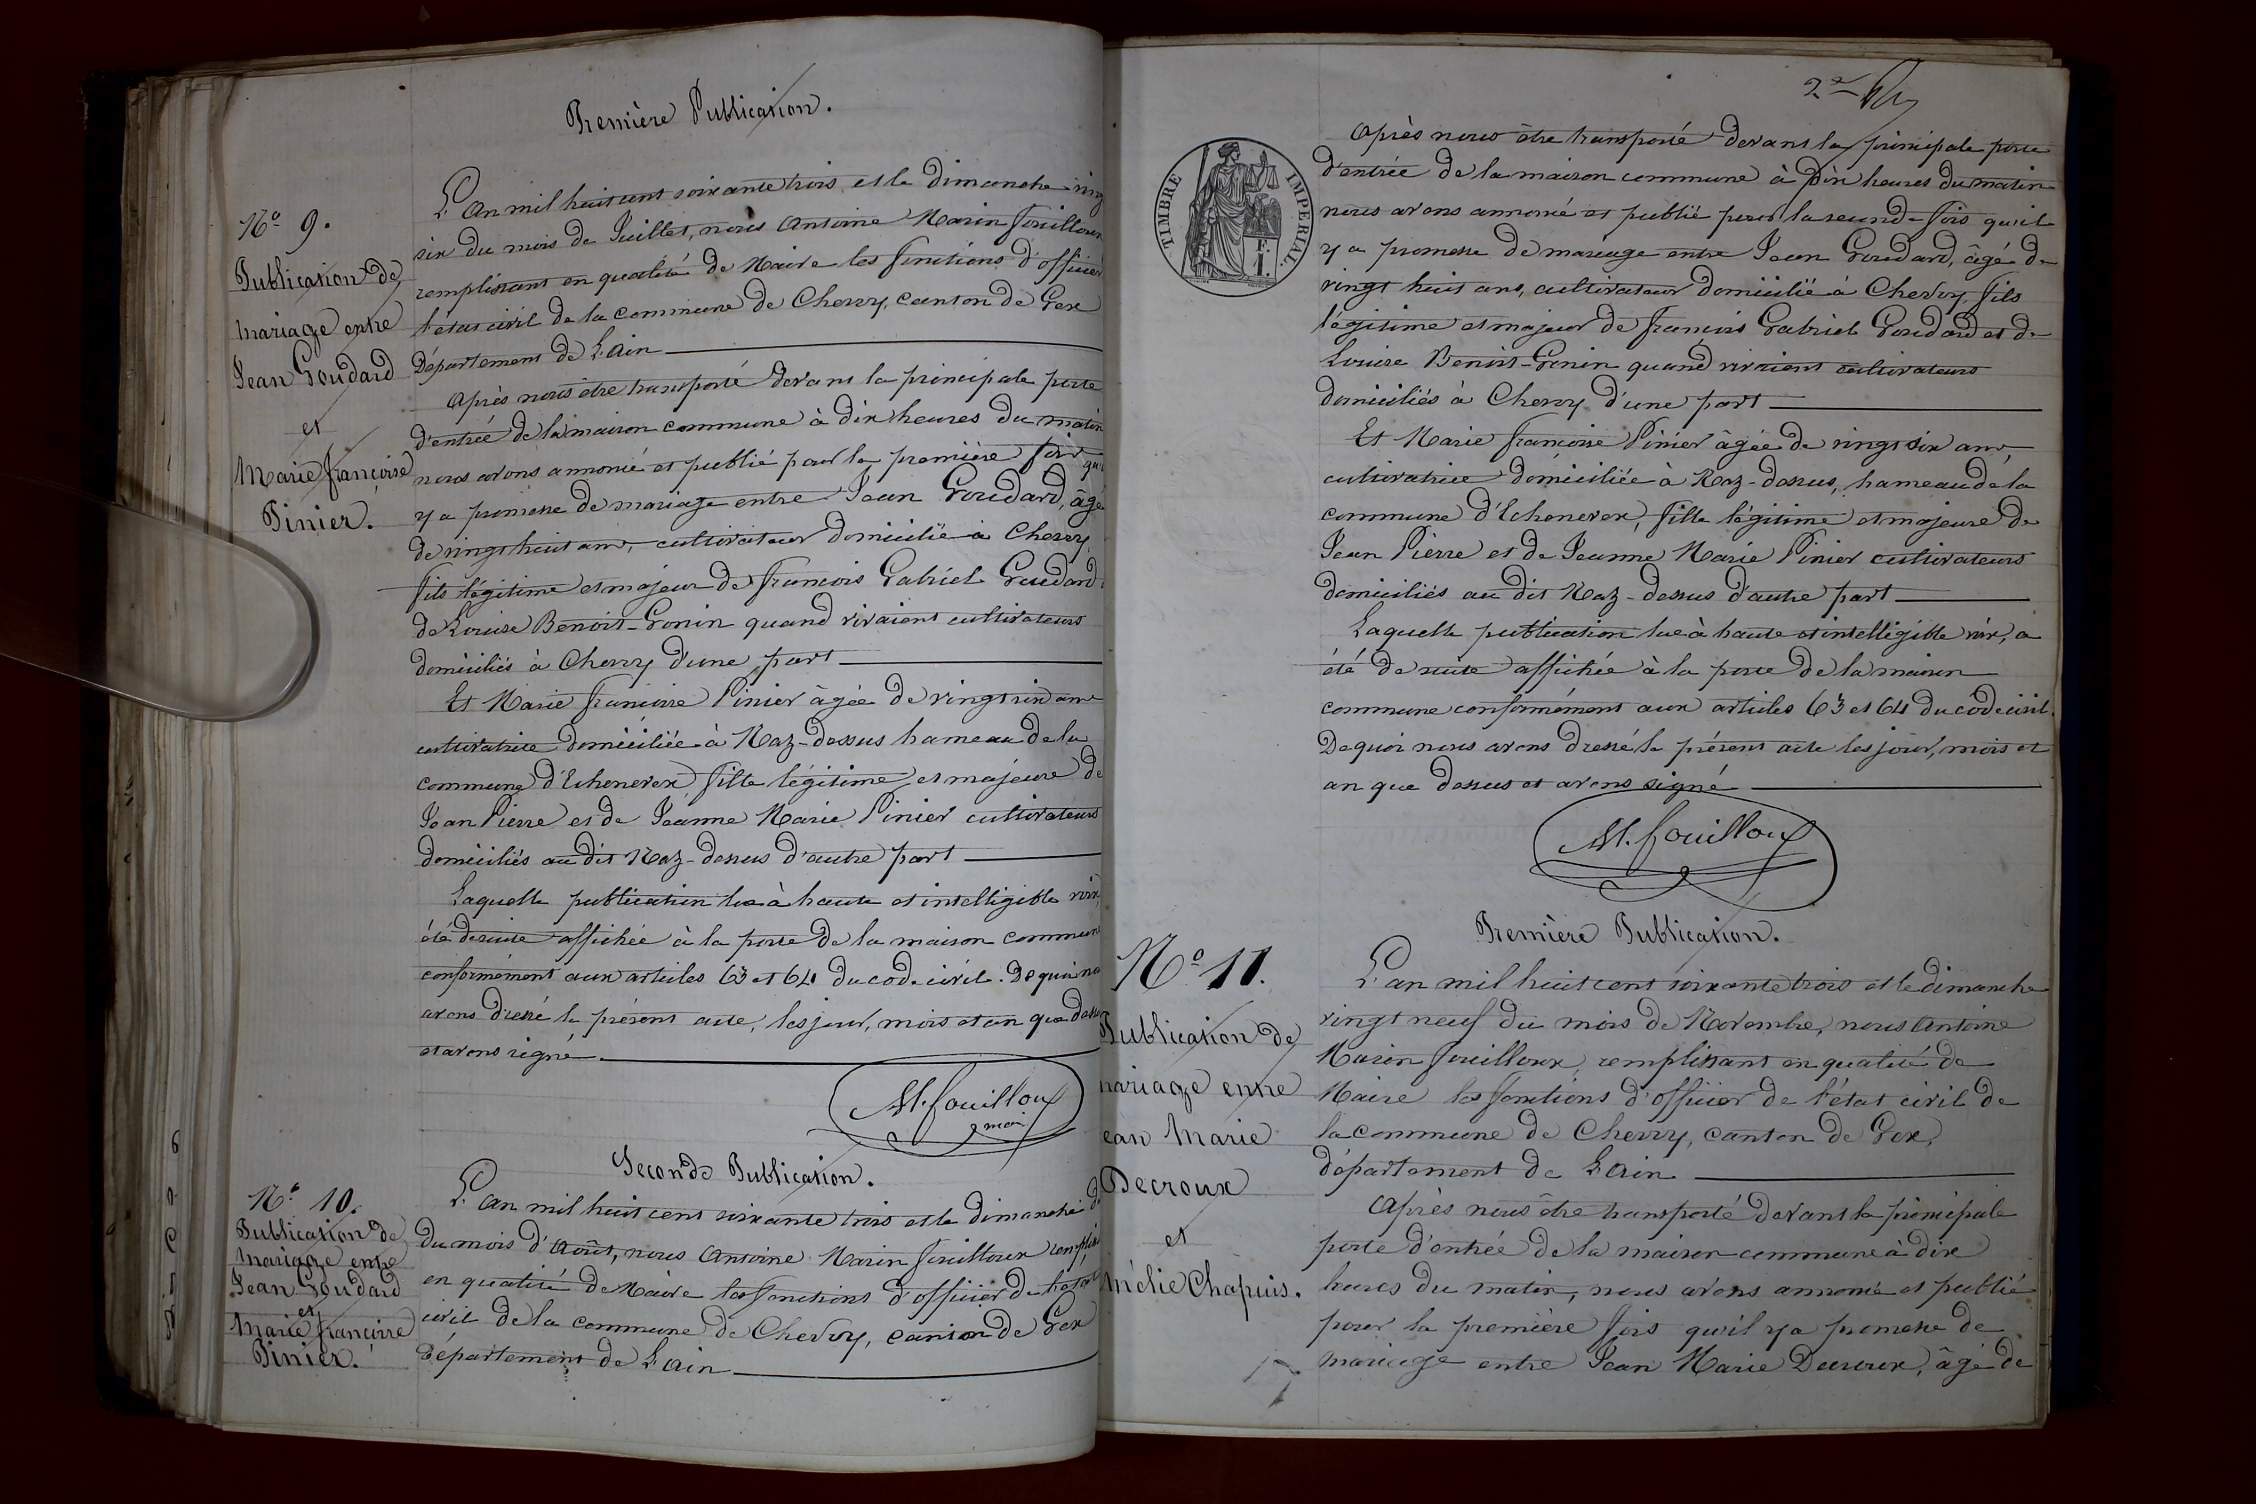 Première Publication.
N° 9.
Publication de
mariage entre
Jean Goudard
et
Marie françoise
Pinier.
L'an mil huit cent soixante trois et le dimanche vingt
six du mois de Juillet, nous Antoine Marin fouilloux
remplissant en qualité de Maire les fonctions d'officier
l'état civil de la commune de Chevry, canton de Gex
Département de L'ain
Après nous être transporté devant la principale porte
d'entrée de la maison commune à dix heures du matin
nous avons annoncé et publié pour la première fois qu'il
y a promesse de mariage entre Jean Goudard, âgé
de vingt huit ans, cultivateur domicilié à Chevry,
fils légitime et majeur de françois Gabriel Goudard
de Louise Benoit-Gonin quand vivaient cultivateurs
domiciliés à Chevry d'une part
Et Marie françoise Pinier âgée de vingt six ans
cultivatrice domiciliée à Naz-dessus hameau de la
commune d'Echenevex fille légitime et majeure de
Jean Pierre et de Jeanne Marie Pinier cultivateurs
domiciliés au dit Naz-dessus d'autre part
Laquelle publication lue à haute et intelligible voix,
été de suite affichée à la porte de la maison commune
conformément aux articles 63 et 64 du code civil. De quoi nous
avons dressé le présent acte, les jour, mois et an que dessus
et avons signé
M. fouilloux
maire
Seconde Publication.
N° 10.
Publication de
mariage entre
Jean Goudard
et
Marie françoise
Pinier.
L'an mil huit cent soixante trois et le dimanche
du mois d'Août, nous Antoine Marin fouilloux remplissant
en qualité de Maire les fonctions d'officier de l'état
civil de la commune de Chevry, canton de Gex
Département de L'ain
2e
TIMBRE IMPERIAL.
F.
1.
Après nous être transporté devant la principale porte
d'entrée de la maison commune à dix heures du matin
nous avons annoncé et publié pour la seconde fois qu'il
y a promesse de mariage entre Jean Goudard, âgé de
vingt huit ans, cultivateur domicilié à Chevry, fils
légitime et majeur de françois Gabriel Goudard et de
Louise Benoit-Gonin quand vivaient cultivateurs
domiciliés à Chevry d'une part
Et Marie françoise Pinier âgée de vingt six ans,
cultivatrice domiciliée à Naz-dessus, hameau de la
commune d'Echenevex, fille légitime et majeure de
Jean Pierre et de Jeanne Marie Pinier cultivateurs
domiciliés au dit Naz-dessus d'autre part
Laquelle publication lue à haute et intelligible voix, a
été de suite affichée à la porte de la maison
commune conformément aux articles 63 et 64 du code civil.
De quoi nous avons dressé le présent acte les jour, mois et
an que dessus et avons signé
M. fouilloux
Première Publication.
N° 11.
Publication de
mariage entre
Jean Marie
Decroux
et
Mélie Chapuis.
L'an mil huit cent soixante trois et le dimanche
vingt neuf du mois de Novembre, nous Antoine
Marin fouilloux, remplissant en qualité de
Maire les fonctions d'officier de l'état civil de
la commune de Chevry, canton de Gex,
département de L'ain
Après nous être transporté devant la principale
porte d'entrée de la maison commune à dix
heures du matin, nous avons annoncé et publié
pour la première fois qu'il y a promesse de
mariage entre Jean Marie Decroux, âgé de